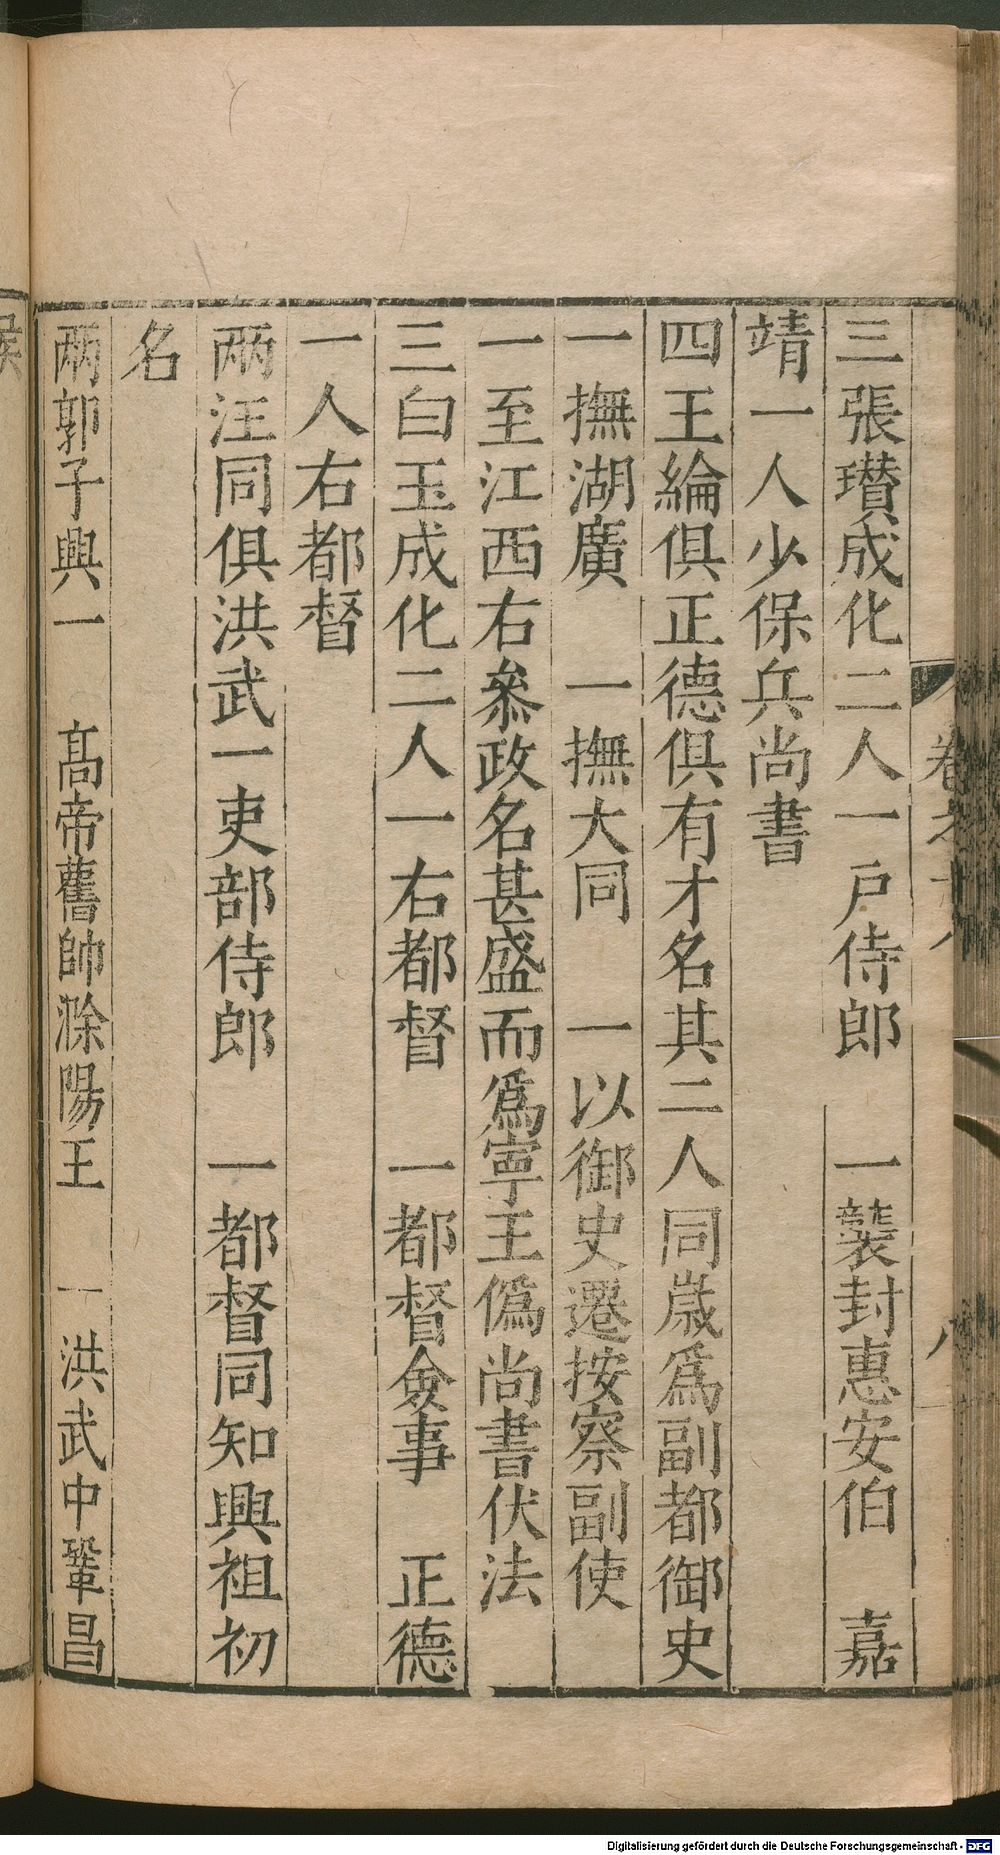 三張瓚成化二人一戶侍郎　一襲封惠安伯　嘉
靖一人少保兵尚書
四王綸俱正德俱有才名其二人同歲爲副都御史
一撫湖廣　一撫大同　一以御史遷按察副使
一至江西右叅政名甚盛而爲寧王僞尚書伏法
三白玉成化二人一右都督　一都督僉事　正德
一人右都督
兩汪同俱洪武一吏部侍郎　一都督同知興祖初
名
兩郭子興一　高帝舊帥滁陽王　一洪武中鞏昌
侯
Digitalisierung gefördert durch die Deutsche Forschungsgemeinschaft - DFG